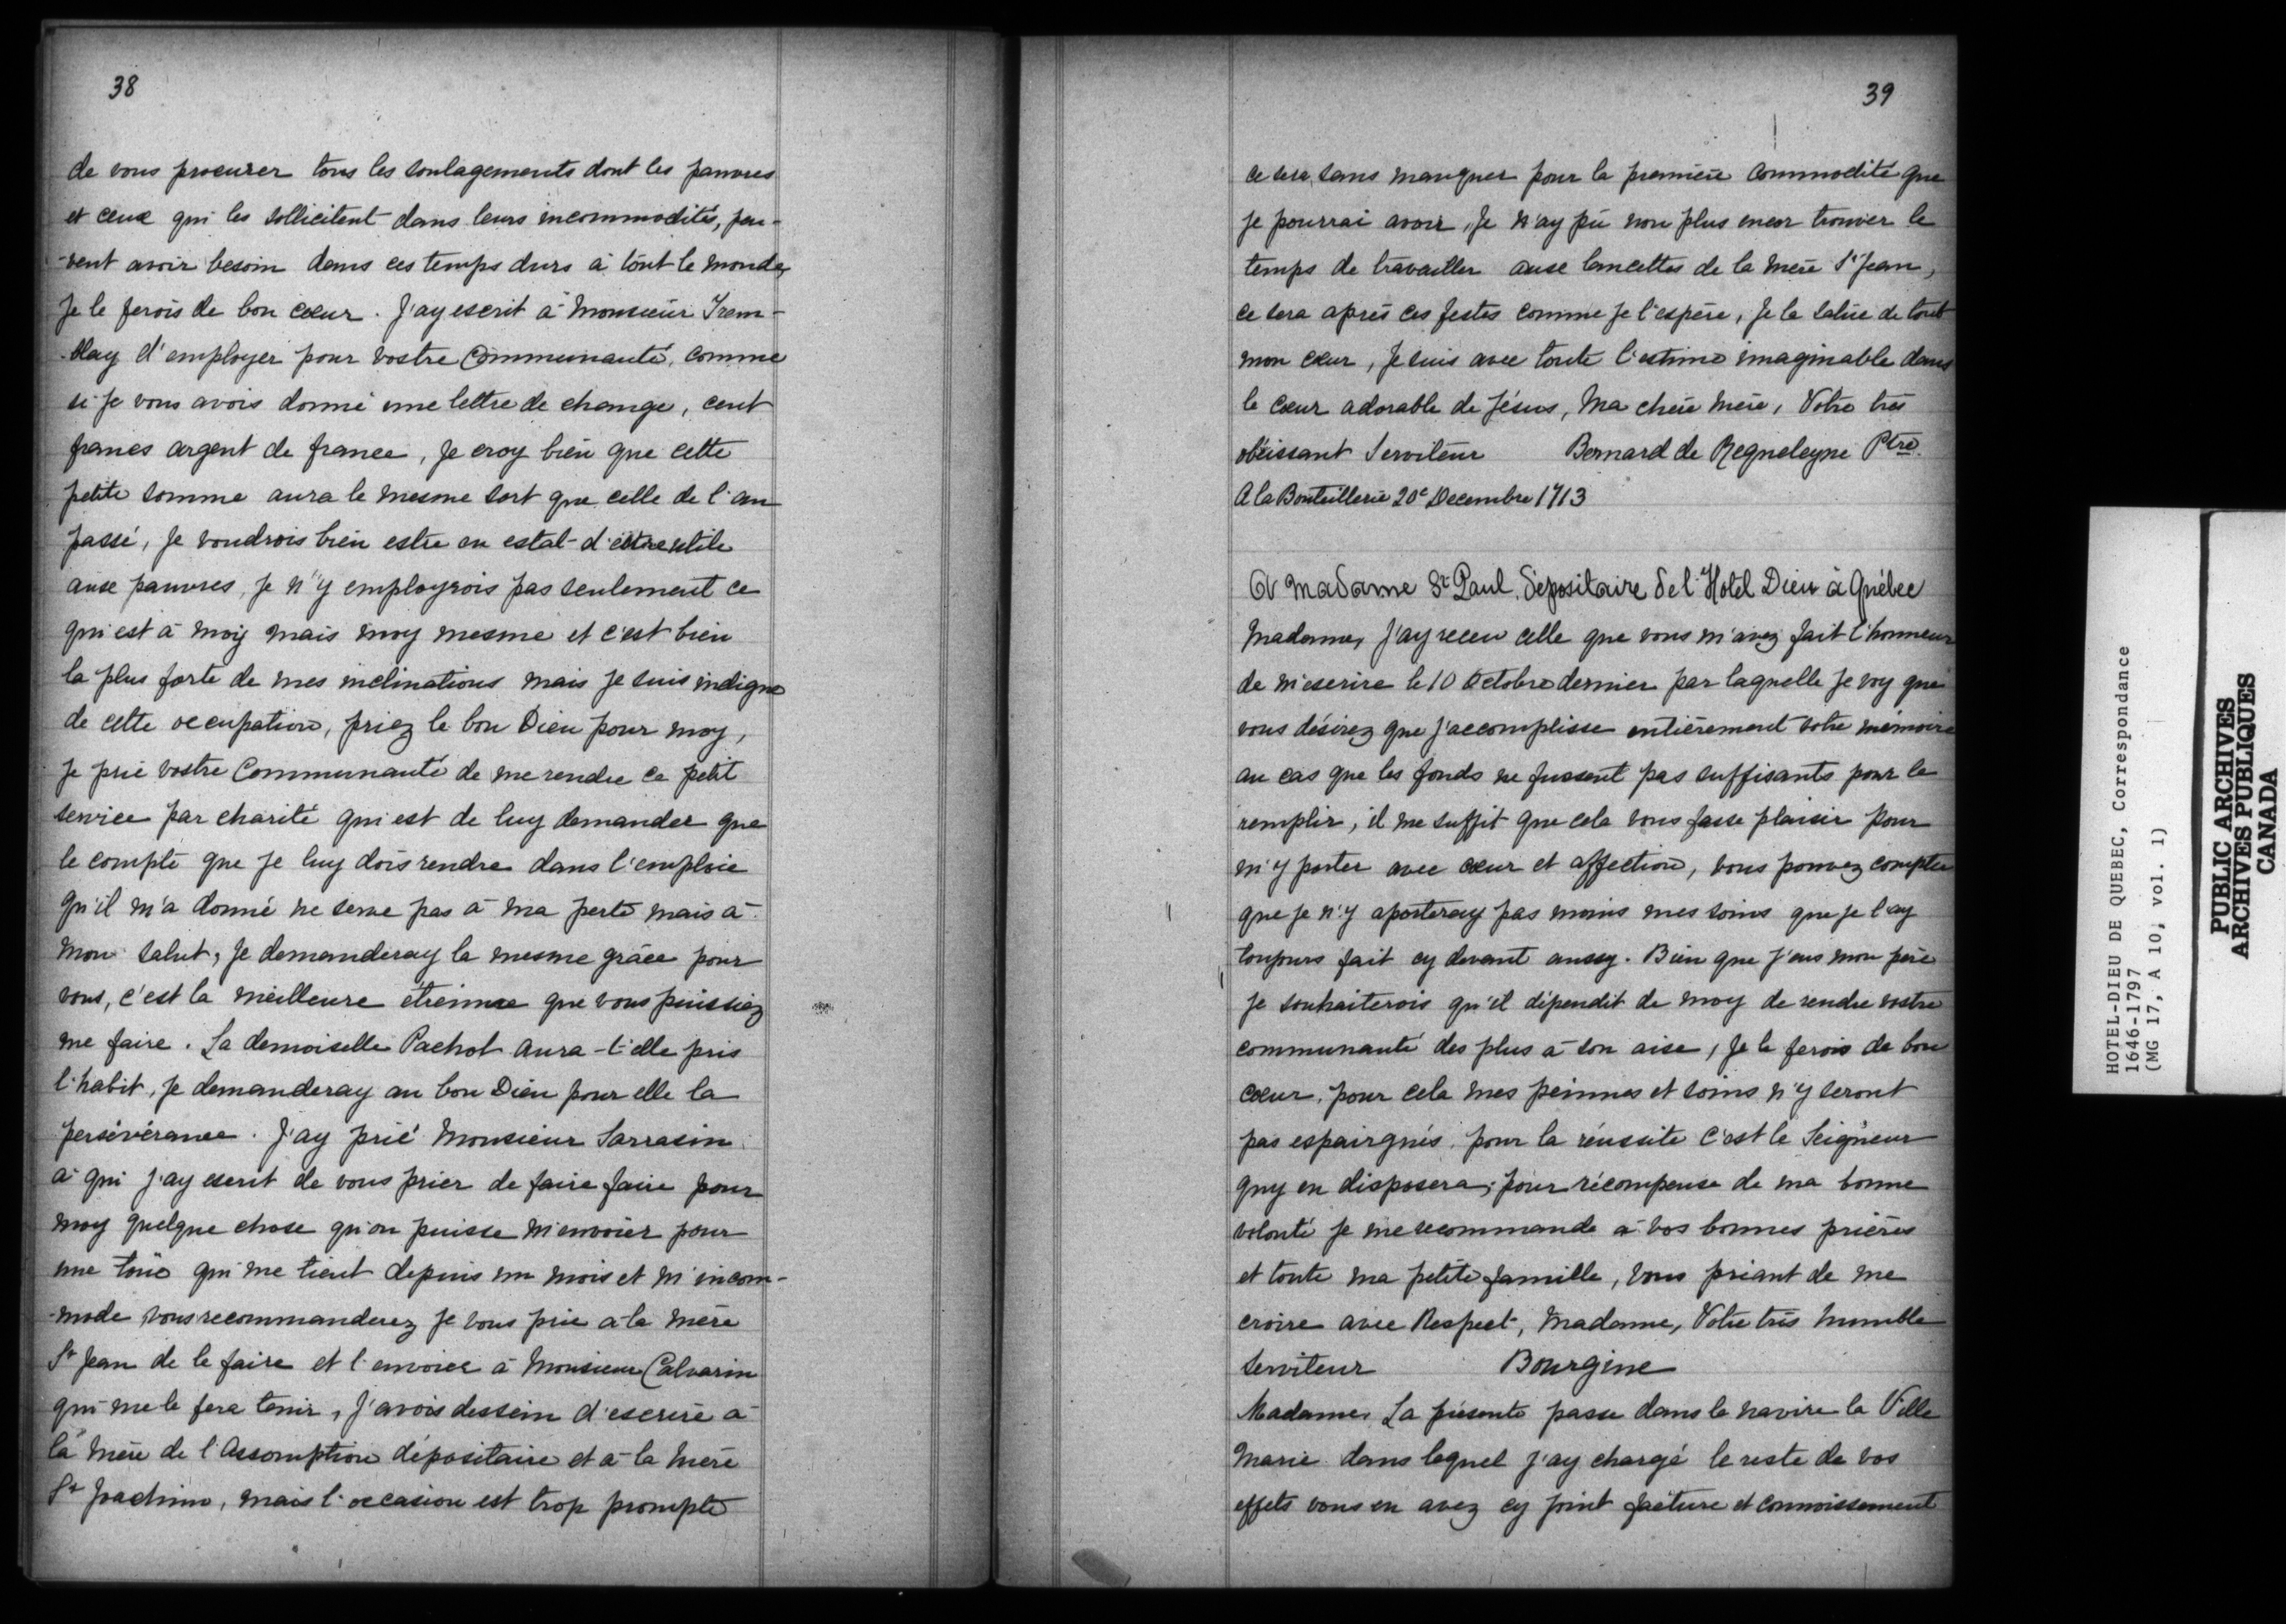 38
de vous procurer tous les soulagements dont les pauvres
et ceux qui les sollicitent dans leurs incommodités, peu-
-vent avoir besoin dans ces temps durs à tout le monde,
Je le ferois de bon cœur. J'ay escrit à Monsieur Trem-
-blay d'employer pour vostre Communauté, comme
si je vous avois donné une lettre de change, cent
francs argent de france, Je croy bien que cette
petite somme aura le mesme sort que celle de l'an
passé, Je voudrois bien estre en estat d'être utile
aux pauvres, Je n'y employrois pas seulement ce
qui est à moy mais moy mesme et c'est bien
la plus forte de mes inclinations mais Je suis indigne
de cette occupation, priez le bon Dieu pour moy,
Je prie vostre Communauté de me rendre ce petit
service par charité qui est de luy demander que
le compte que Je luy dois rendre dans l'emploie
qu'il m'a donné ne serve pas à ma perte mais à
mon salut, Je demanderay la mesme grâce pour
vous, c'est la meilleure étrenne que vous puissiez
me faire. La demoiselle Pachot aura-t-elle pris
l'habit, Je demanderay au bon Dieu pour elle la
persévérance. J'ay prié Monsieur Sarrasin
à qui J'ay escrit de vous prier de faire faire pour
moy quelque chose qu'on puisse m'envoier pour
une toûe qui me tient depuis un mois et m'incom-
-mode vous recommanderez Je vous prie à la mère
St Jean de le faire et l'envoier à Monsieur Calvarin
qui me le fera tenir, J'avois dessein d'escrire à
la mère de l'Assomption dépositaire et à la mère
St Joachim, mais l'occasion est trop prompte
39
ce sera sans manquer pour la première commodité que
je pourrai avoir, Je n'ay pû non plus encor trouver le
temps de travailler aux lancettes de la mère St Jean,
ce sera après ces festes comme Je l'espère, Je la salüe de tout
mon cœur, Je suis avec toute l'estime imaginable dans
le cœur adorable de Jésus, Ma chère mère, Votre très
obéissant Serviteur Bernard de Requeleyne Ptre.
A la Bouteillerie 20e Decembre 1713
A Madame St Paul, dépositaire de l'Hotel Dieu à Québec
Madame, J'ay receu celle que vous m'avez fait l'honneur
de m'escrire le 10 Octobre dernier par laquelle Je voy que
vous désirez que J'accomplisse entièrement votre mémoire
au cas que les fonds ne fussent pas suffisants pour le
remplir, il me suffit que cela vous fasse plaisir pour
m'y porter avec cœur et affection, vous pouvez compter
que Je n'y aporteray pas moins mes soins que Je l'ay
toujours fait cy devant aussy. Bien que J'eus mon père
Je souhaiterois qu'il dépendit de moy de rendre vostre
communauté des plus à son aise, Je le ferois de bon
cœur, pour cela mes peinnes et soins n'y seront
pas espairgnés, pour la réussite c'est le Seigneur
quy en disposera; pour récompense de ma bonne
volonté Je me recommande à vos bonnes prières
et toute ma petite famille, vous priant de me
croire avec Respect, Madame, Votre très humble
serviteur Bourgine
Madame, La présente passe dans le navire la Ville
Marie dans lequel J'ay chargé le reste de vos
effets vous en avez cy joint facture et connoissement
HOTEL-DIEU DE QUEBEC, Correspondance
1646-1797
(MG 17, A 10, vol. 1)
PUBLIC ARCHIVES
ARCHIVES PUBLIQUES
CANADA